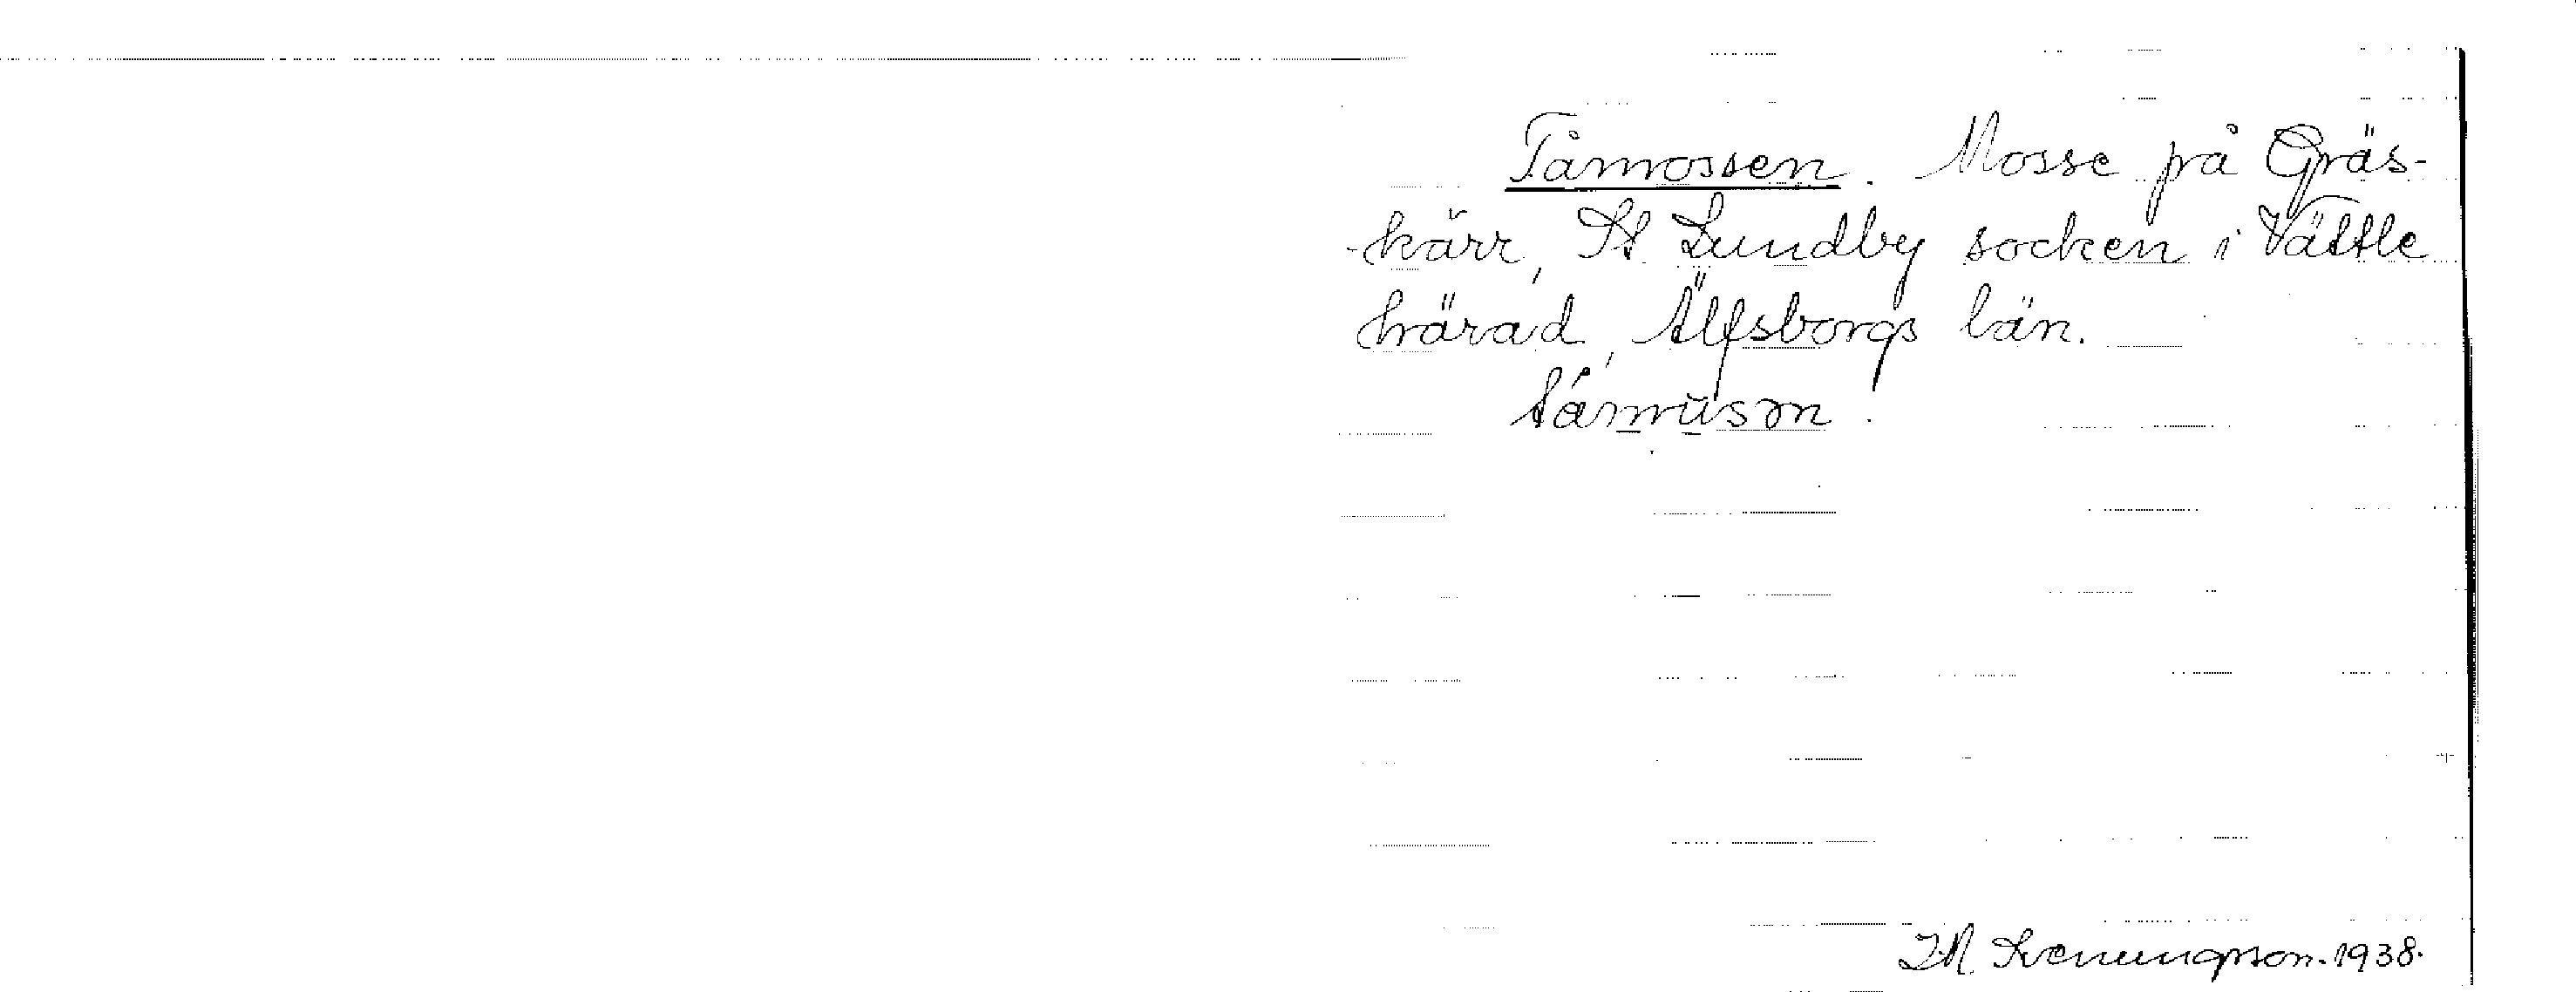 Tåmossen. Mosse på Gräs-
-kärr, St. Lundby socken i Vättle
härad, Älfsborgs län.
1938.